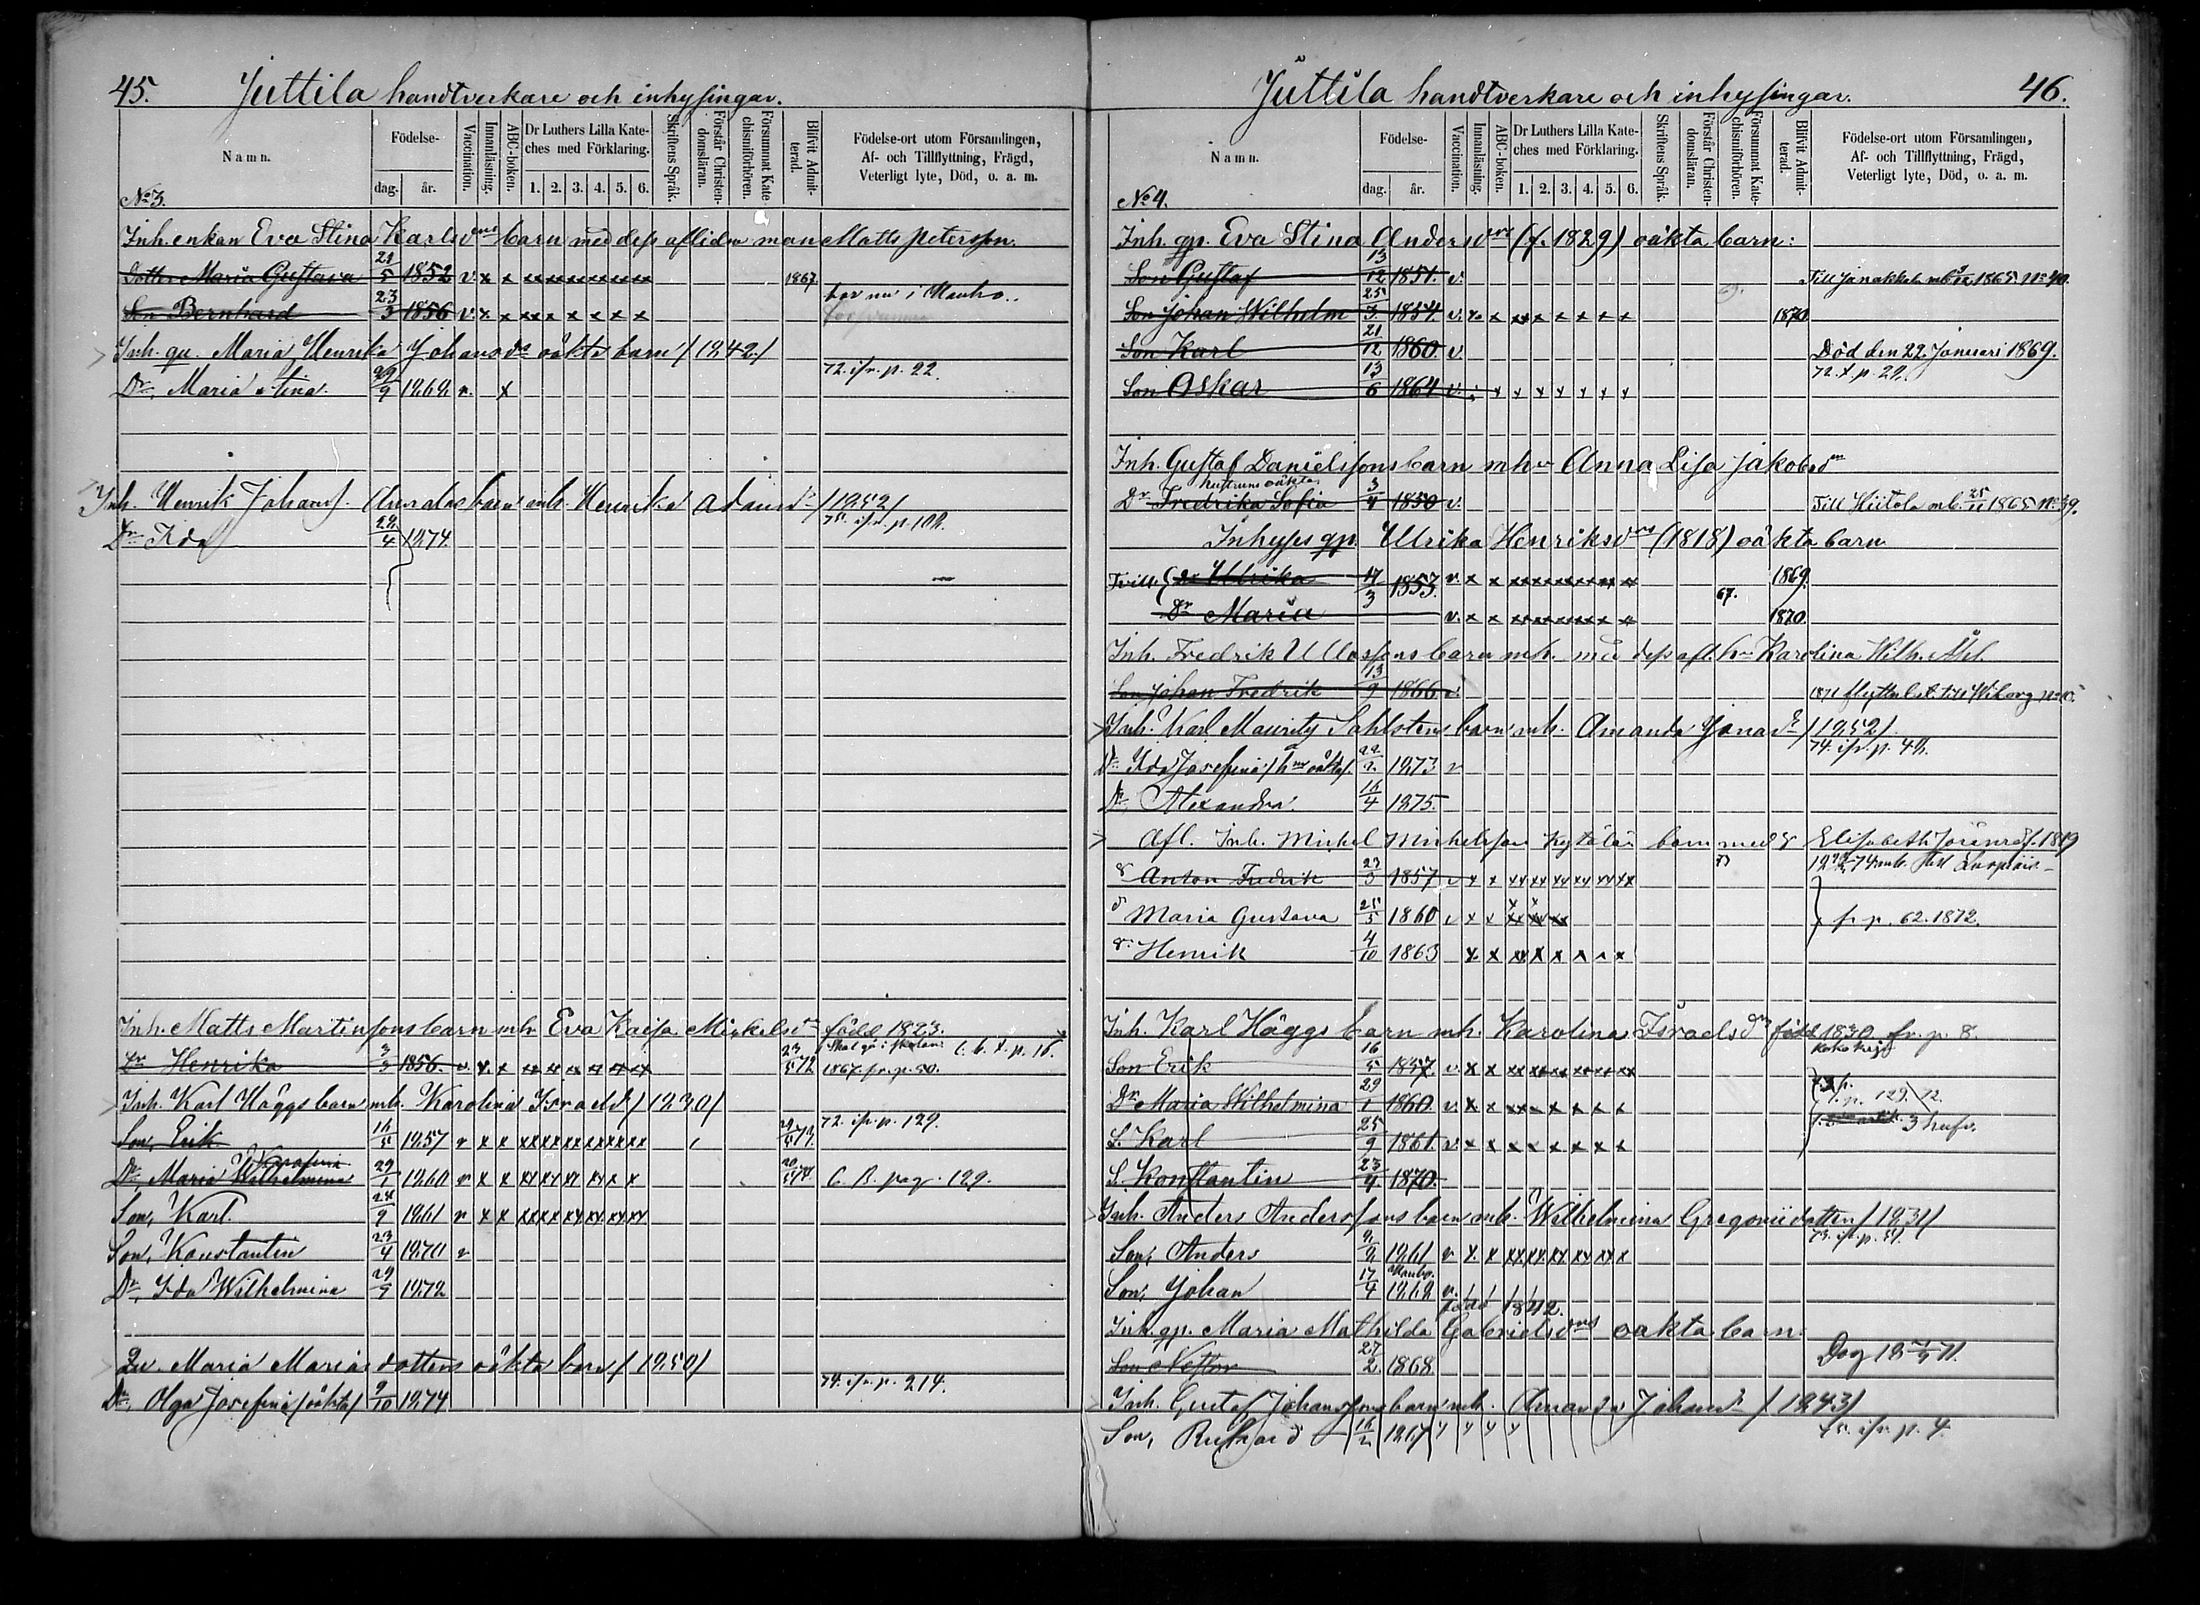 45. Juttila handtverkare och inhysingar.
Namn. Födelse- dag. år. Vaccination. Innanläsning. ABC-boken. Dr Luthers Lilla Kateches med Förklaring. 1. 2. 3. 4. 5. 6. Skriftens Språk. Förstår Christendomsläran. Försummat Katechismiförhören. Blifvit Admitterad. Födelse-ort utom Församlingen, Af- och Tillflyttning, Frägd, Veterligt lyte, Död, o. a. m.
No 3.
Inh. enkan Eva Stina Karlsdrs barn med dess aflidne man Matts Petersson.
Dotter Maria Gustava 21/5 1852 v. x x xx xx xx xx xx xx 1867.
bor nu i Mauho..
Son Bernhard 23/3 1856 v. x x xx x x x x x
Inh. qv. Maria Henrika Johansdrs oäkta barn /1842/
72. ifr. p. 22.
Dr, Maria Stina. 29/9 1869 v. x
Inh. Henrik Johans. barn mh. Henrika Adamsdr /1852/
75. ifr. p. 102.
Dr Ida 22/4 1874.
Inh. Matts Martinssons barn mh Eva Kaisa Mickelsdr född 1823.
Skal gå i skolan C. b. t. p. 16.
Dr Henrika 3/3 1856. v. x x xx xx xx xx xx xx 23/5 72 1867. fr. p. 50.
Inh. Karl Häggs barn mh. Karolina Israelsdr /1830/
72. ifr. p. 129.
Son, Erik 16/5 1857 v x x xx xx xx xx xx xx
Dr, Maria Wilhelmina Josefina 29/1 1860 v x x xx xx xx xx x x C. B. pag. 129.
Son, Karl. 25/9 1861 v x x xx xx xx xx xx xx
Son, Konstantin 23/4 1870 v
Dr, Ida Wilhelmina 29/7 1872
Qv. Maria Mariasdotters oäkta barn /1850/
74. ifr. p. 214.
Dr, Olga Josefina /oäkta/ 9/10 1874
Juttila handtverkare och inhysingar. 46.
Namn. Födelse- dag. år. Vaccination. Innanläsning. ABC-boken. Dr Luthers Lilla Kateches med Förklaring. 1. 2. 3. 4. 5. 6. Skriftens Språk. Förstår Christendomsläran. Försummat Katechismiförhören. Blifvit Admitterad. Födelse-ort utom Församlingen, Af- och Tillflyttning, Frägd, Veterligt lyte, Död, o. a. m.
No 4.
Inh. qp. Eva Stina Andersdrs (f. 1829) oäkta barn:
Son Gustaf 13/12 1851. v. Till Janakkala mb. 1865. No 40.
Son Johan Wilhelm 25/3 1854. v. x. x xx x x x x x 1870
Son Karl 21/12 1860. v Död den 22 Januari 1869.
72. t. p. 22.
Son Oskar 13/6 1864 v. x x x x x x x
Inh. Gustaf Danielssons barn mhu Anna Lisa Jakobsdr
hustruns oäkta
Dr Fredrika Sofia 3/4 1850 v. Till Hiitola mb. 25/11 1865 No 39.
Inhyses qp Ulrika Henriksdrs (1818) oäkta barn
Tvill. { Dr Ulrika 17/3 1853. v. x x xx xx xx xx xx xx 1869.
67.
Dr Maria v. x x xx xx xx xx x x 1870.
Inh. Fredrik Ulassons barn mh. med dess afl. hu Karolina Wilh. Åhl.
Son Johan Fredrik 13/9 1866 v. 1871 flyttn. bet. till Wiborg No 10.
Inh. Karl Mauritz Sahlstens barn mh. Amanda Jonasdr /1852/
74. ifr. p. 42.
Dr Ida Josefina /hns oäkta/. 22/2 1873 v
Dr, Alexandra. 16/4 1875.
Afl. Inh. Mickel Mickelsson Kytölä barn med E Elisabeth Göransd. f. 1819
Anton Fredrik 23/3 1857 v x x xx xx xx xx xx xx
d Maria Gustava 25/5 1860 v x x xx xx xx fr p. 62. 1872.
s. Henrik 4/10 1863 x x xx x x x x x
Inh. Karl Häggs barn mh. Karolina Israelsdr född 1830 fr. p. 8.
Son Erik 16/5 1857 v. x x xx xx xx xx xx xx
Dr Maria Wilhelmina 29/1 1860 v. x x xx xx x x x x p. 129. 72.
S. Karl 25/9 1861. v. x x x x x x x x
S. Konstantin 23/4 1870.
Inh. Anders Anderssons barn mh. Wilhelmina Gregoriidotter /1831/
Son, Anders 1861 v x x xx xx xx xx xx x
Son, Johan 17/4 1868 v.
född 1842.
Inh. qp. Maria Mathilda Gabrielsdrs oäkta barn
Son Nestor 27/2 1868
Inh. Gustaf Johanssons barn mh. Amanda Johansdr /1843/
75. ifr. p. 4.
Son, Richard 16/2 1867